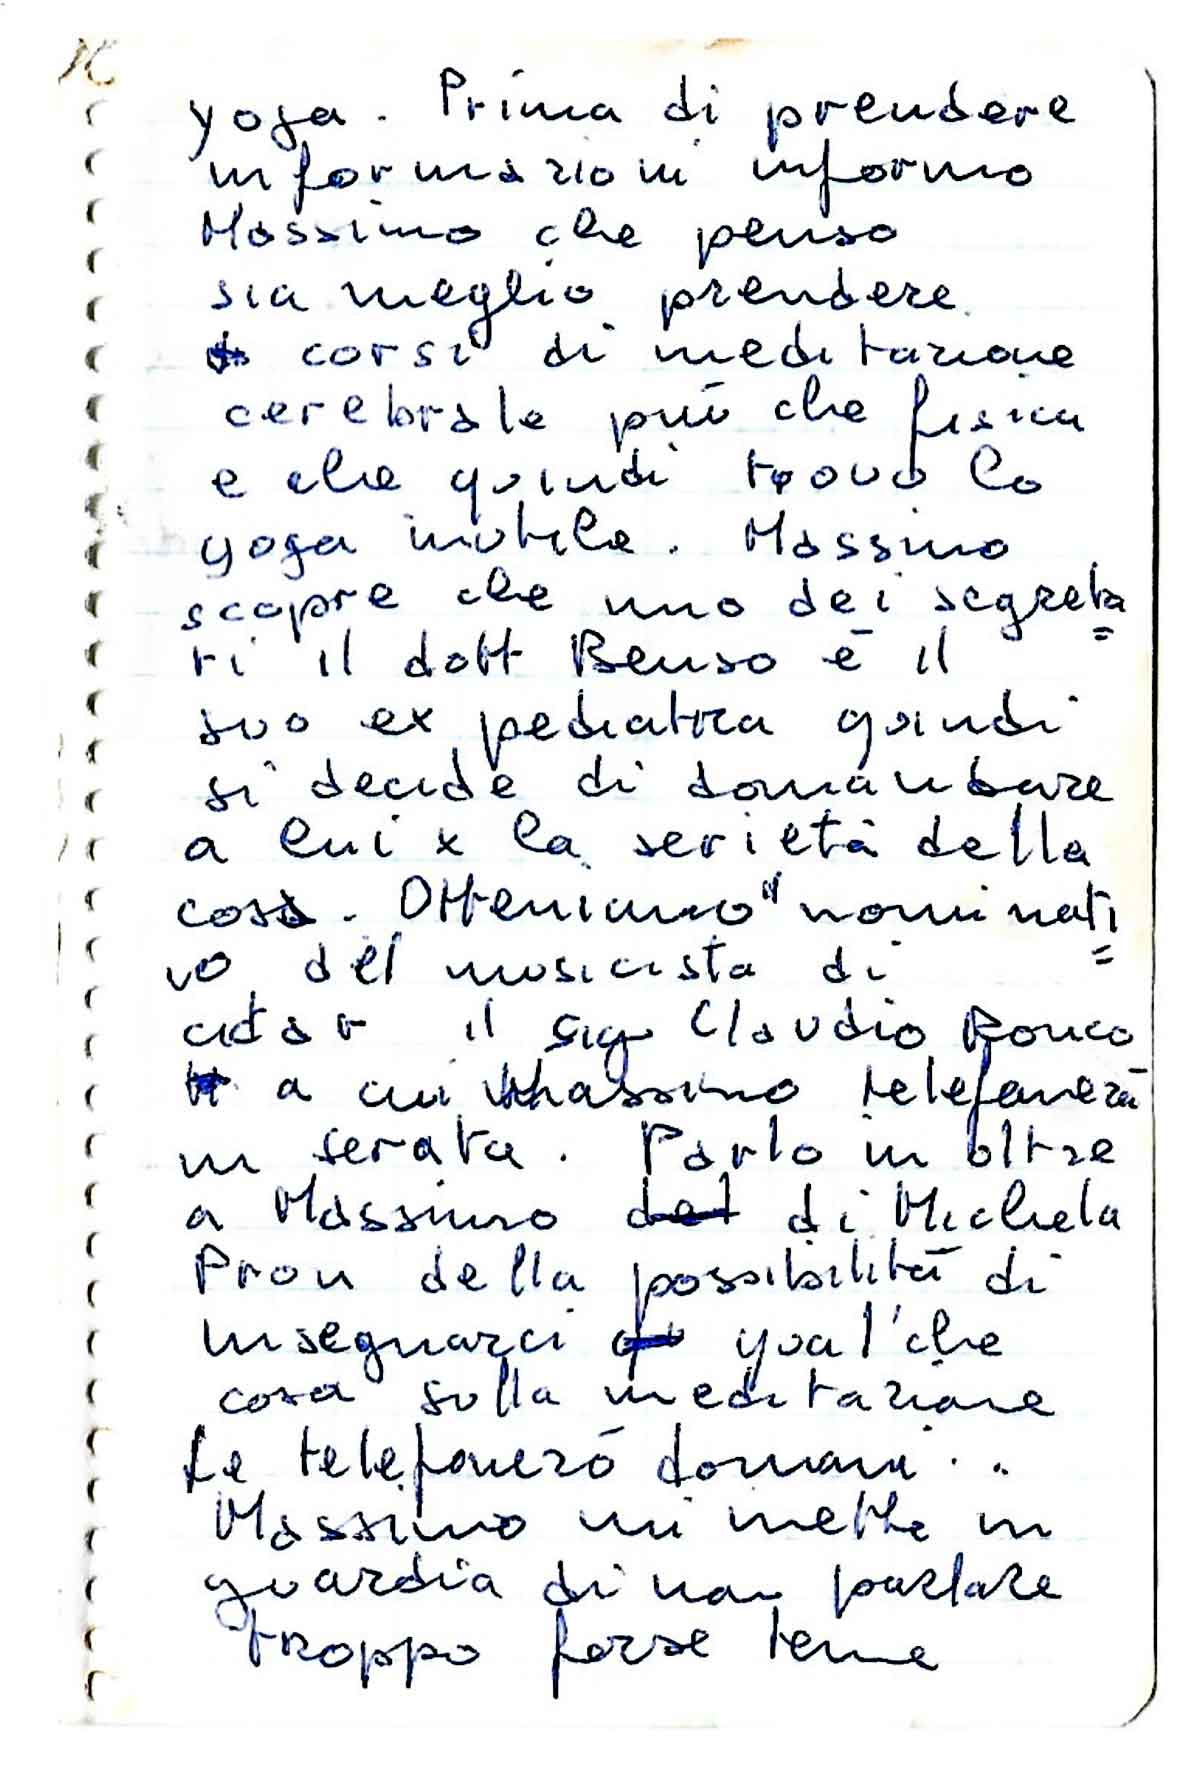 yoga. Prima di prendere
informazioni informo
Massimo che penso
sia meglio prendere
corsi di meditazione
cerebrale più che fisica
e che quindi trovo lo
yoga inutile. Massimo
scopre che uno dei segreta=
ri il dott Benso è il
suo ex pediatra quindi
si decide di domandare
a lui x la serietà della
cosa. Otteniamo il nominati=
vo del musicista di
citar il sig Claudio Ronco
a cui Massimo telefonerà
in serata. Parlo in oltre
a Massimo del di Michela
Pron della possibilità di
insegnarci qual'che
cosa sulla meditazione
Le telefonerò domani..
Massimo mi mette in
guardia di non parlare
troppo forse teme